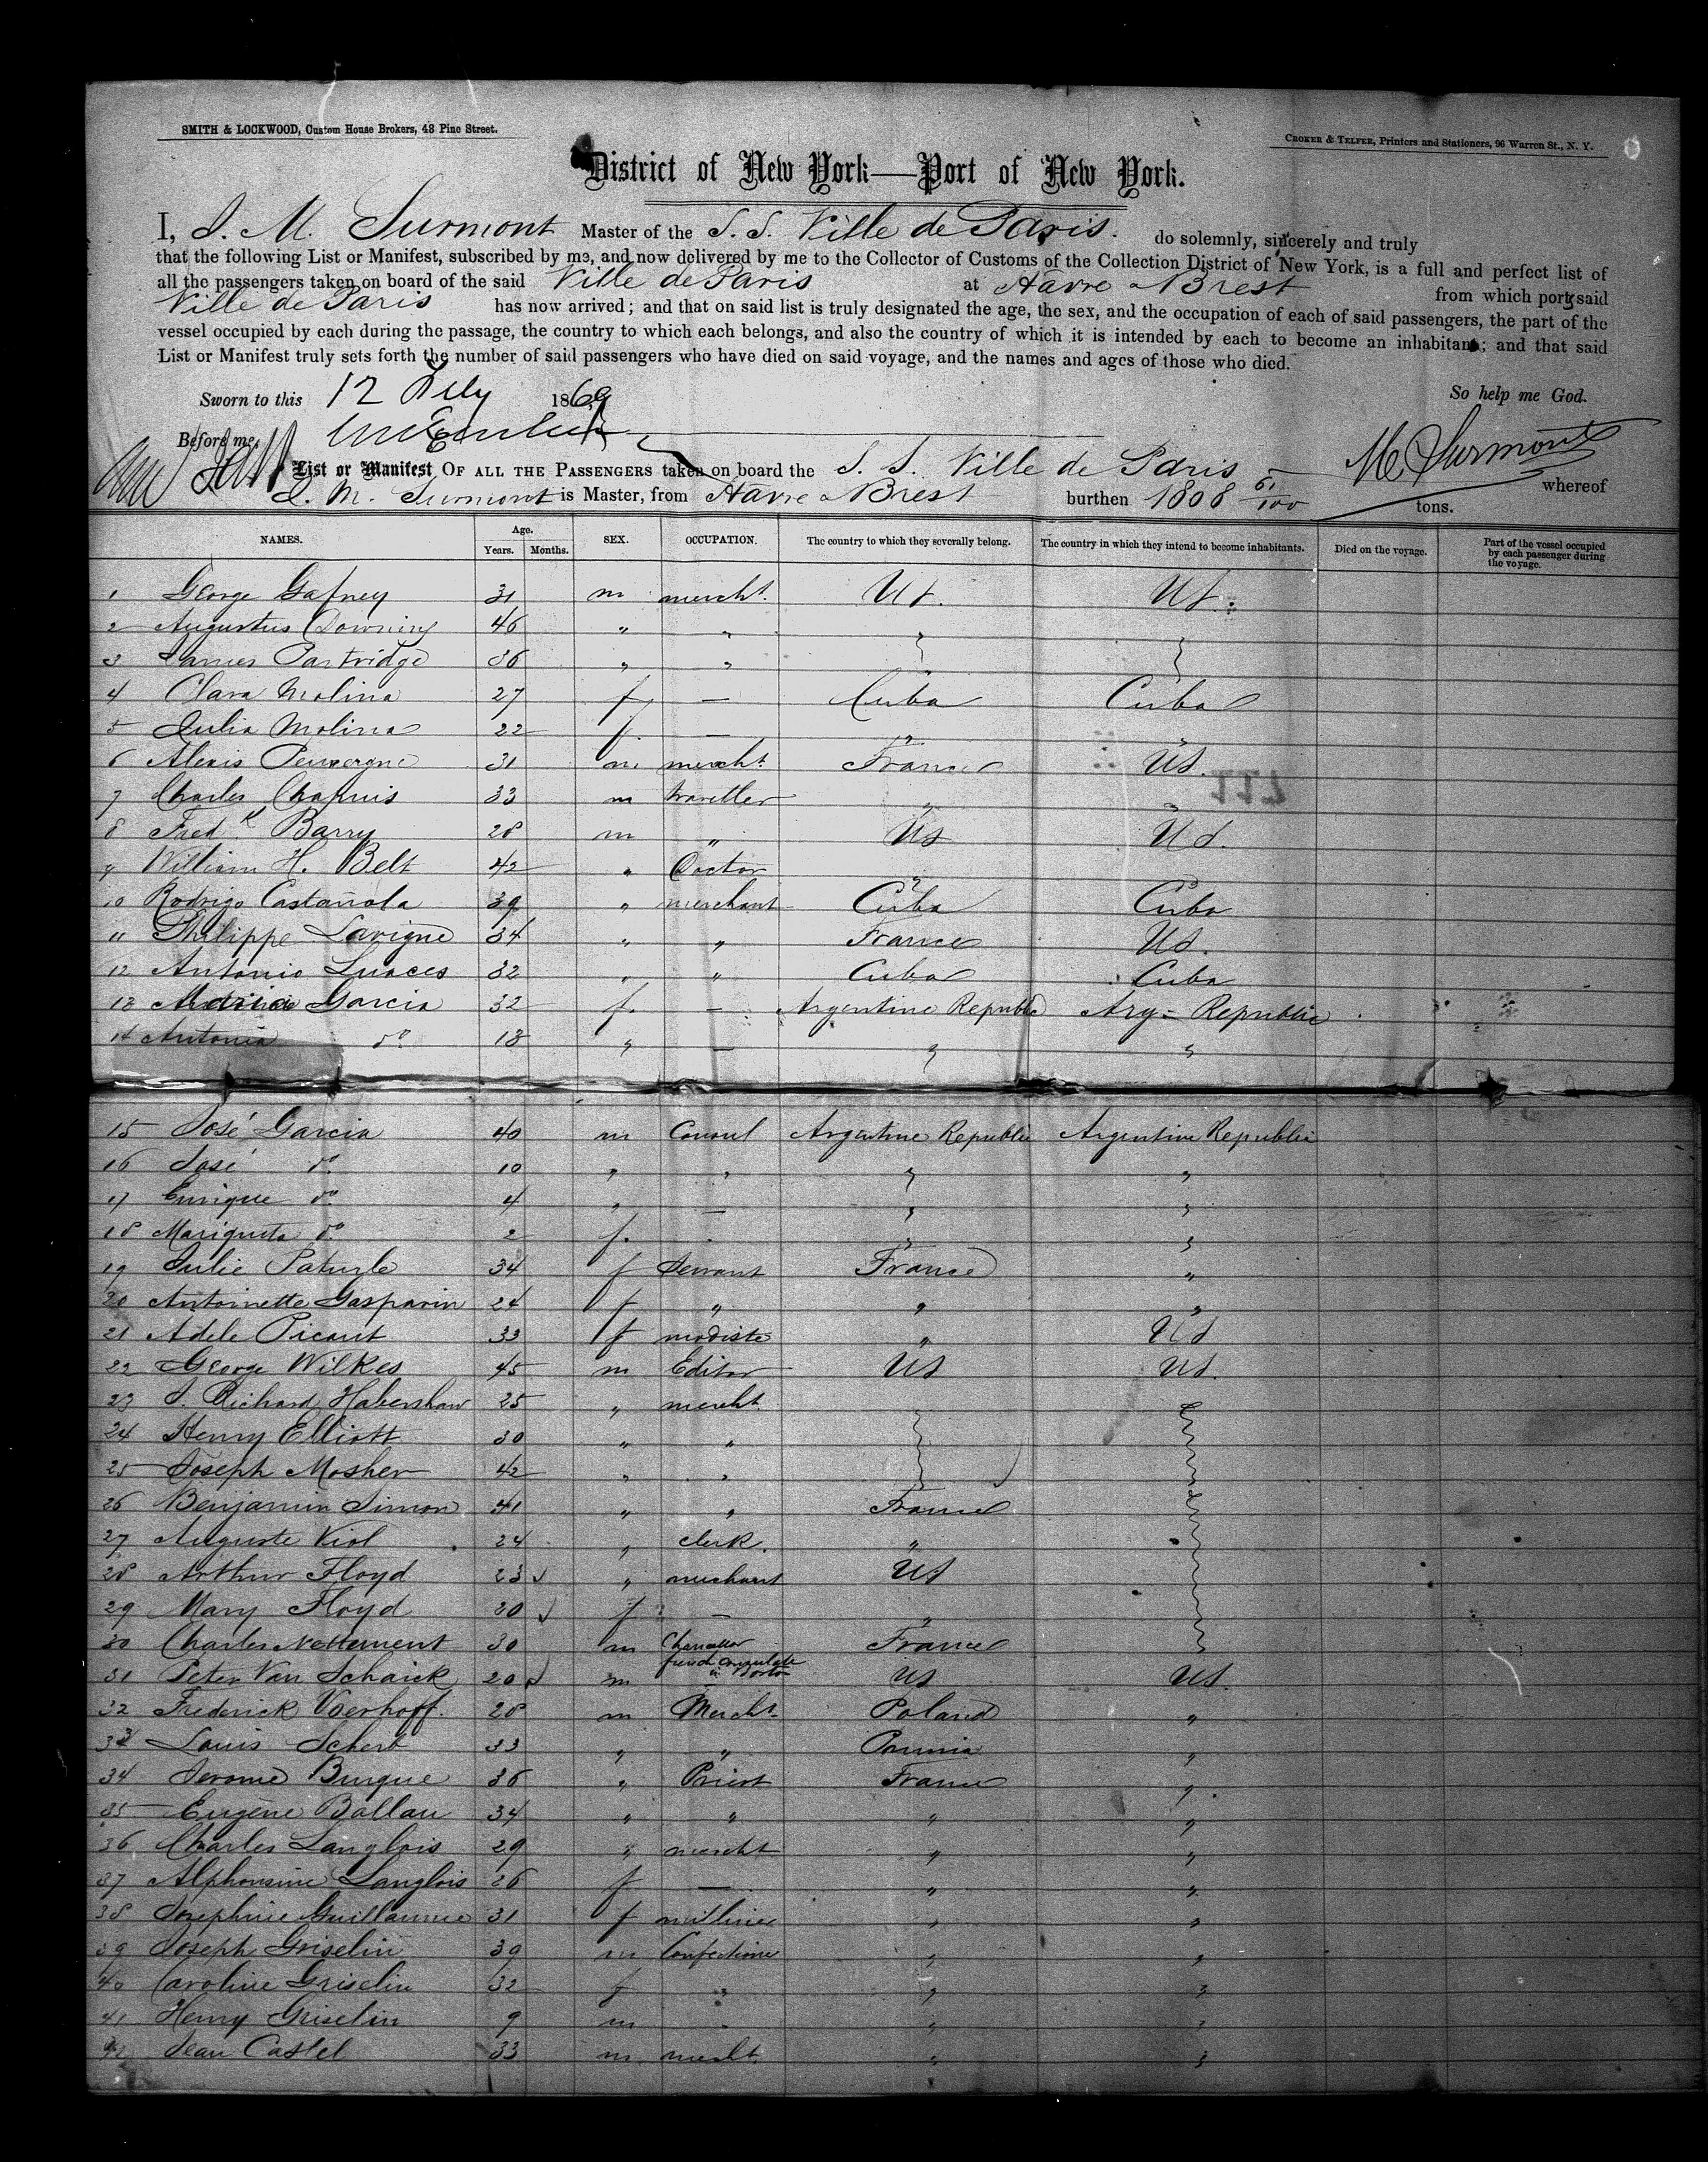 SMITH & LOCKWOOD, Custom House Brokers, 48 Pine Street.
CROKER & TELFER, Printers and Stationers, 96 Warren St., N. Y.
District of New York—Port of New York.
I, J. M. Surmont Master of the S.S. Ville de Paris. do solemnly, sincerely and truly
that the following List or Manifest, subscribed by me, and now delivered by me to the Collector of Customs of the Collection District of New York, is a full and perfect list of
all the passengers taken on board of the said Ville de Paris at Havre & Brest from which port said
Ville de Paris has now arrived; and that on said list is truly designated the age, the sex, and the occupation of each of said passengers, the part of the
vessel occupied by each during the passage, the country to which each belongs, and also the country of which it is intended by each to become an inhabitant; and that said
List or Manifest truly sets forth the number of said passengers who have died on said voyage, and the names and ages of those who died.
Sworn to this 12 July 1869 So help me God.
Before me,
M Surmont
List or Manifest OF ALL THE PASSENGERS taken on board the S. S. Ville de Paris whereof
J. M. Surmont is Master, from Havre & Brest burthen 1808 61/100 tons.
NAMES. Age. Years. Months. SEX. OCCUPATION. The country to which they severally belong. The country in which they intend to become inhabitants. Died on the voyage. Part of the vessel occupied by each passenger during the voyage.
1 George Gafney 31 m mercht. US. US.
2 Augustus Downing 46 " " "
3 James Partridge 36 " " "
4 Clara Molina 27 f — Cuba Cuba
5 Julia Molina 22 f. — " "
6 Alexis Peuvergne 31 m. mercht. France US.
7 Charles Chapuis 33 m traveller " "
8 Fredk Barry 28 m " US US.
9 William H. Belt 42 " Doctor " "
10 Rodrigo Castañola 39 " merchant Cuba Cuba
11 Philippe Lavigne 34 " " France US.
12 Antonio Luaces 32 " " Cuba Cuba
13 Maria Garcia 32 f. — Argentine Republic Arg= Republic
14 Antonia do 18 " — " "
15 José Garcia 40 m Consul Argentine Republic Argentine Republic
16 José do 10 " " " "
17 Enrique do 4 " — " "
18 Mariquita do 2 f. " "
19 Julie Paturle 34 f Servant France "
20 Antoinette Gasparin 24 f " " "
21 Adele Picaut 33 f modiste " US
22 George Wilkes 45 m Editor US US.
23 J. Richard Habershaw 25 " mercht.
24 Henry Elliott 30 " "
25 Joseph Mosher 42 " "
26 Benjamin Simon 41 " " France
27 Auguste Viol 24 " clerk. "
28 Arthur Floyd 23 " merchant US
29 Mary Floyd 20 f — "
30 Charles Nettement 30 m Chancellor french consulate in Boston France
31 Peter Van Schaick 20 m US US.
32 Frederick Voerhoff. 28 m Mercht. Poland "
33 Louis Scherb 33 " " "
34 Jerome Burque 36 " Priest France "
35 Eugene Ballau 34 " " " "
36 Charles Langlois 29 " mercht " "
37 Alphonsine Langlois 26 f — " "
38 Josephine Guillaume 31 f milliner " "
39 Joseph Griselin 39 m Confectioner " "
40 Caroline Griselin 32 f " " "
41 Henry Griselin 9 m - " "
42 Jean Castel 33 m. mercht. " "